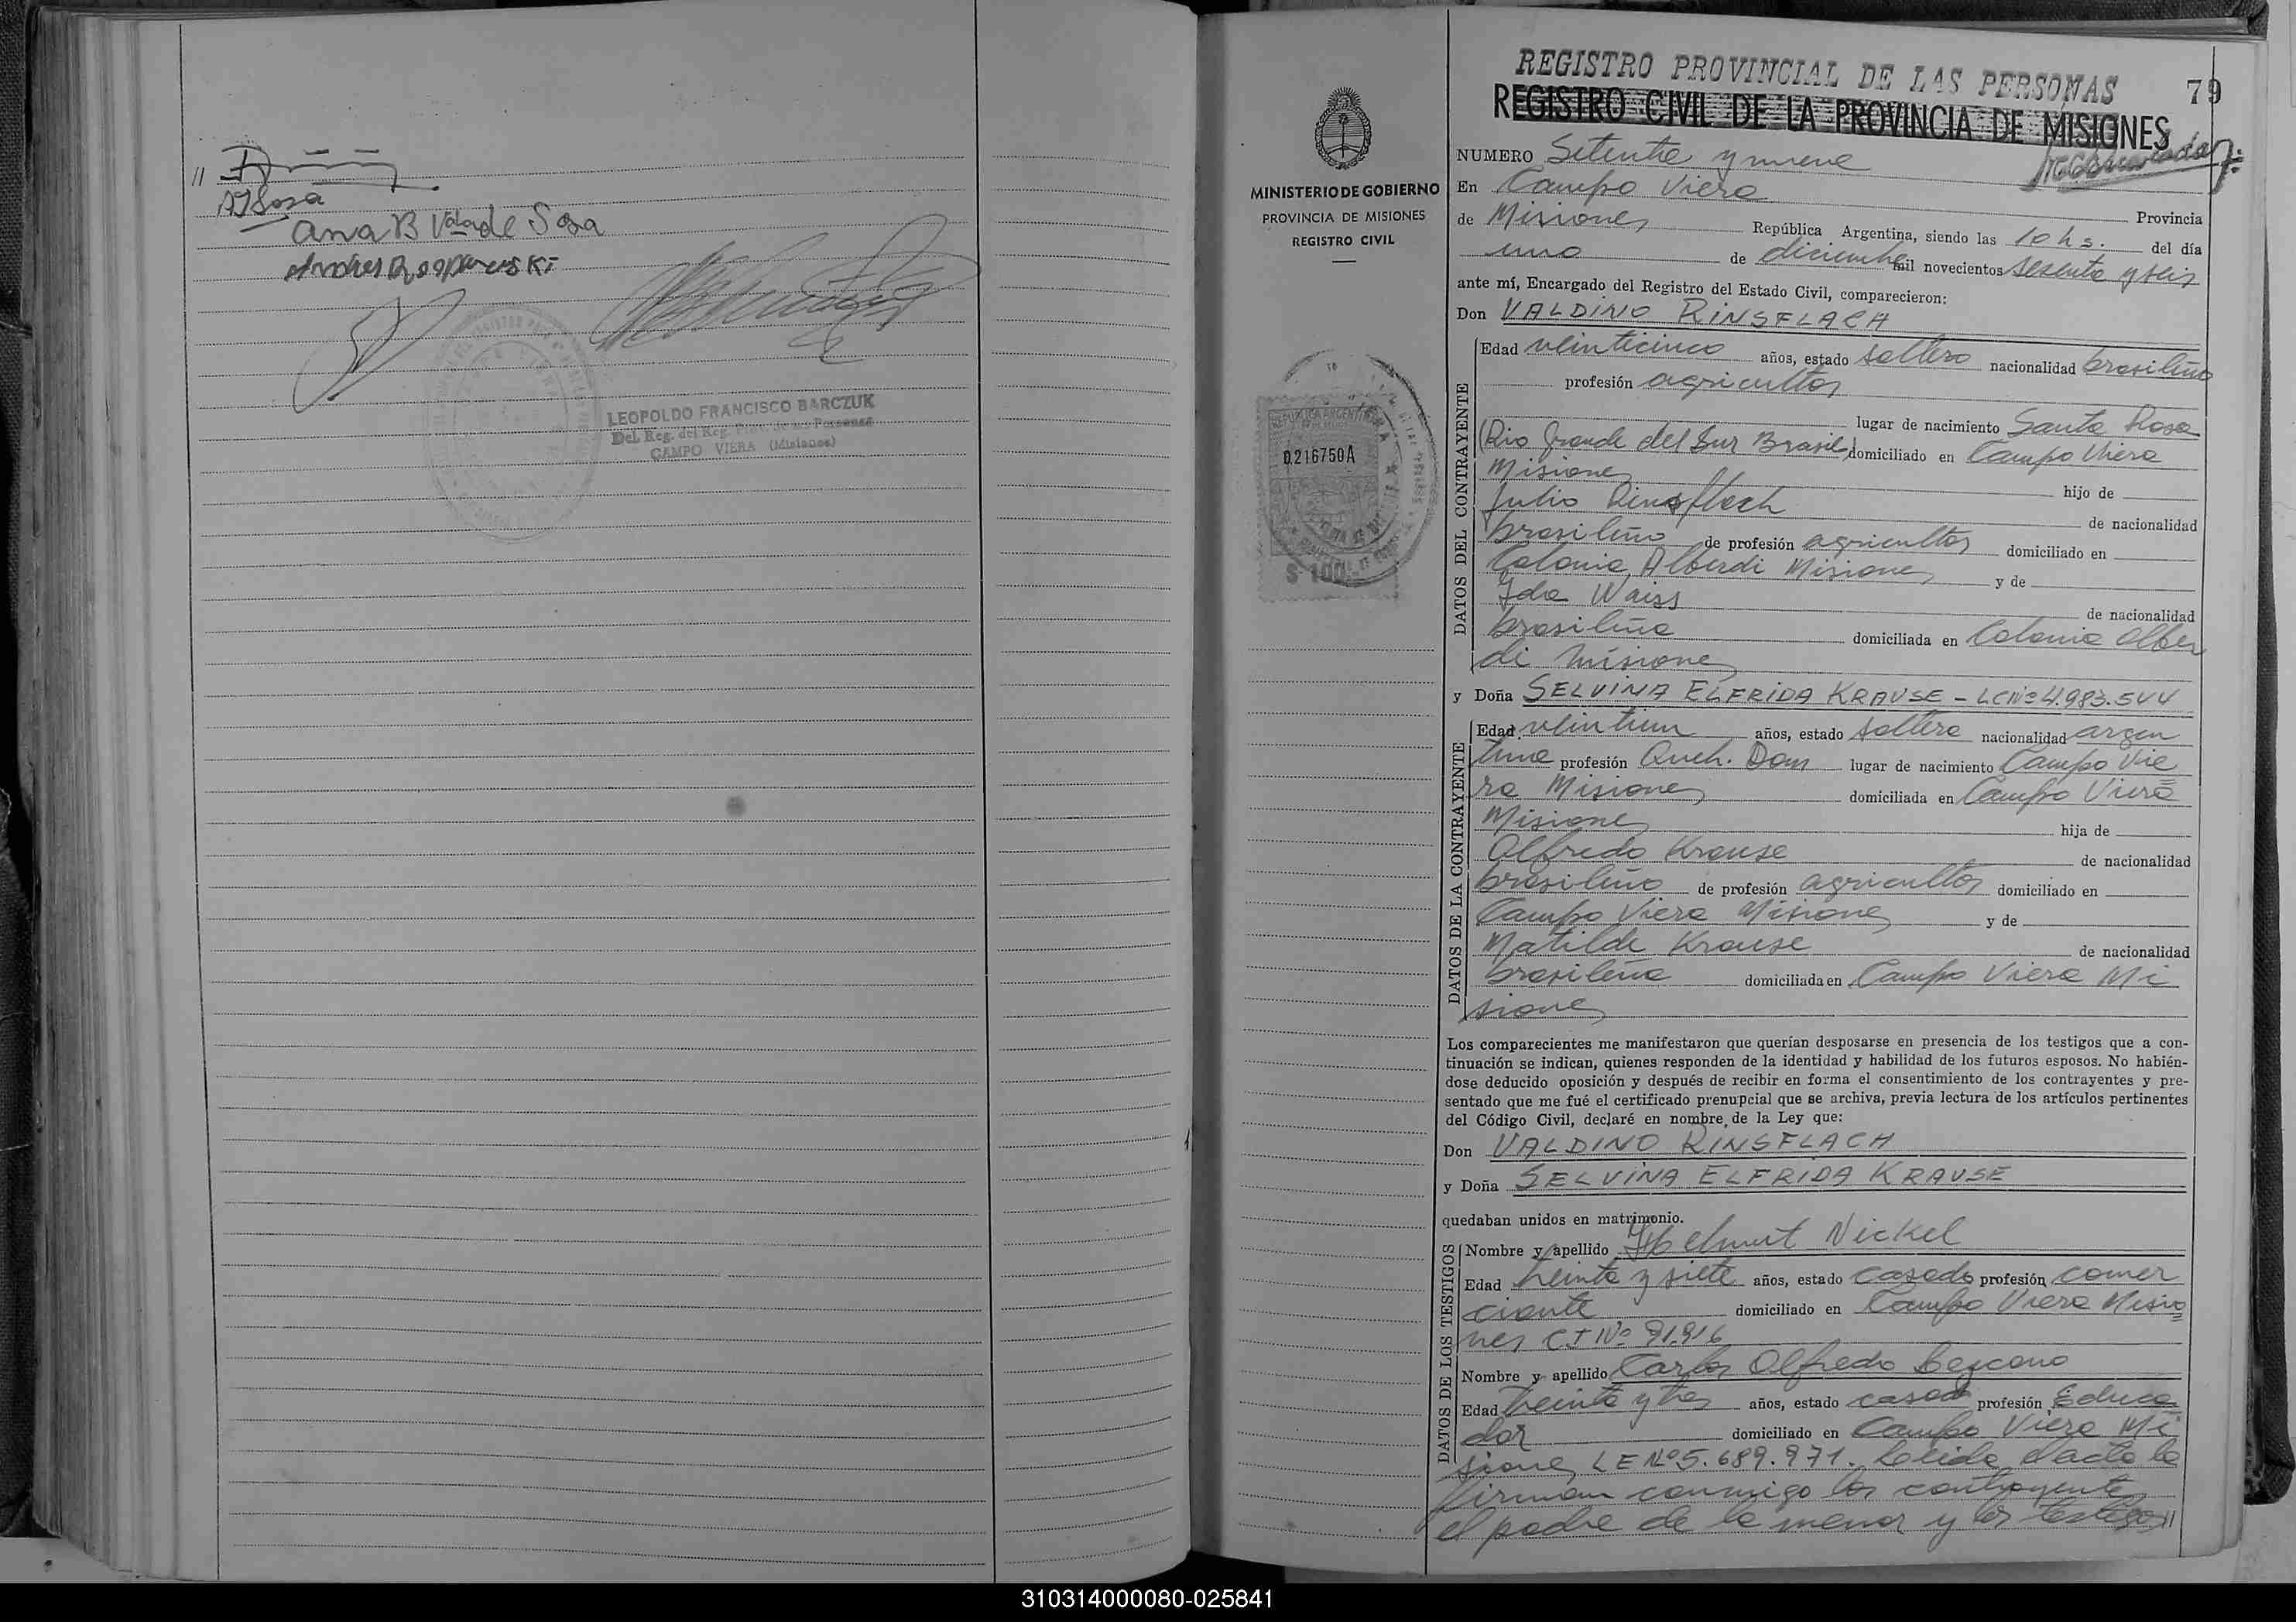 //
A J Sosa
Ana B V de Sosa
LEOPOLDO FRANCISCO BARCZUK
Del. Reg. del Reg. Prov. de las Personas
CAMPO VIERA (Misiones)
REGISTRO PROVINCIAL DE LAS PERSONAS
79
REGISTRO CIVIL DE LA PROVINCIA DE MISIONES
MINISTERIO DE GOBIERNO
PROVINCIA DE MISIONES
REGISTRO CIVIL
REPUBLICA ARGENTINA
0.216750A
$ 100.-
NUMERO Setenta y nueve
En Campo Viera
Provincia
de Misiones República Argentina, siendo las 10 hs. del día
uno de diciembre mil novecientos sesenta y seis
ante mí, Encargado del Registro del Estado Civil, comparecieron:
Don VALDINO RINSFLACH
DATOS DEL CONTRAYENTE
Edad veinticinco años, estado soltero nacionalidad brasileño
profesión agricultor
lugar de nacimiento Santa Rosa
(Rio Grande del Sur Brasil) domiciliado en Campo Viera
Misiones hijo de
Julio Rinsflach de nacionalidad
brasileño de profesión agricultor domiciliado en
Colonia Alberdi Misiones y de
Ida Waiss de nacionalidad
brasileña domiciliada en Colonia Alber
di Misiones
y Doña SELVINA ELFRIDA KRAUSE - LC Nº 4.983.544
DATOS DE LA CONTRAYENTE
Edad veintiun años, estado soltera nacionalidad argen
tina profesión Queh. Dom lugar de nacimiento Campo Vie
ra Misiones domiciliada en Campo Viera
Misiones hija de
Alfredo Krause de nacionalidad
brasileño de profesión agricultor domiciliado en
Campo Viera Misiones y de
Matilde Krause de nacionalidad
brasileña domiciliada en Campo Viera Mi
siones
Los comparecientes me manifestaron que querían desposarse en presencia de los testigos que a con-
tinuación se indican, quienes responden de la identidad y habilidad de los futuros esposos. No habién-
dose deducido oposición y después de recibir en forma el consentimiento de los contrayentes y pre-
sentado que me fué el certificado prenupcial que se archiva, previa lectura de los artículos pertinentes
del Código Civil, declaré en nombre de la Ley que:
Don VALDINO RINSFLACH
y Doña SELVINA ELFRIDA KRAUSE
quedaban unidos en matrimonio.
DATOS DE LOS TESTIGOS
Nombre y apellido Helmut Nickel
Edad treinta y siete años, estado casado profesión comer
ciante domiciliado en Campo Viera Misio
nes CI Nº 91.916
Nombre y apellido Carlos Alfredo Lezcano
Edad treinta y tres años, estado casado profesión Educa
dor domiciliado en Campo Viera Mi
siones LE Nº 5.689.971. Leida el acta la
firman conmigo los contrayentes
el padre de la menor y los testigos//
310314000080-025841